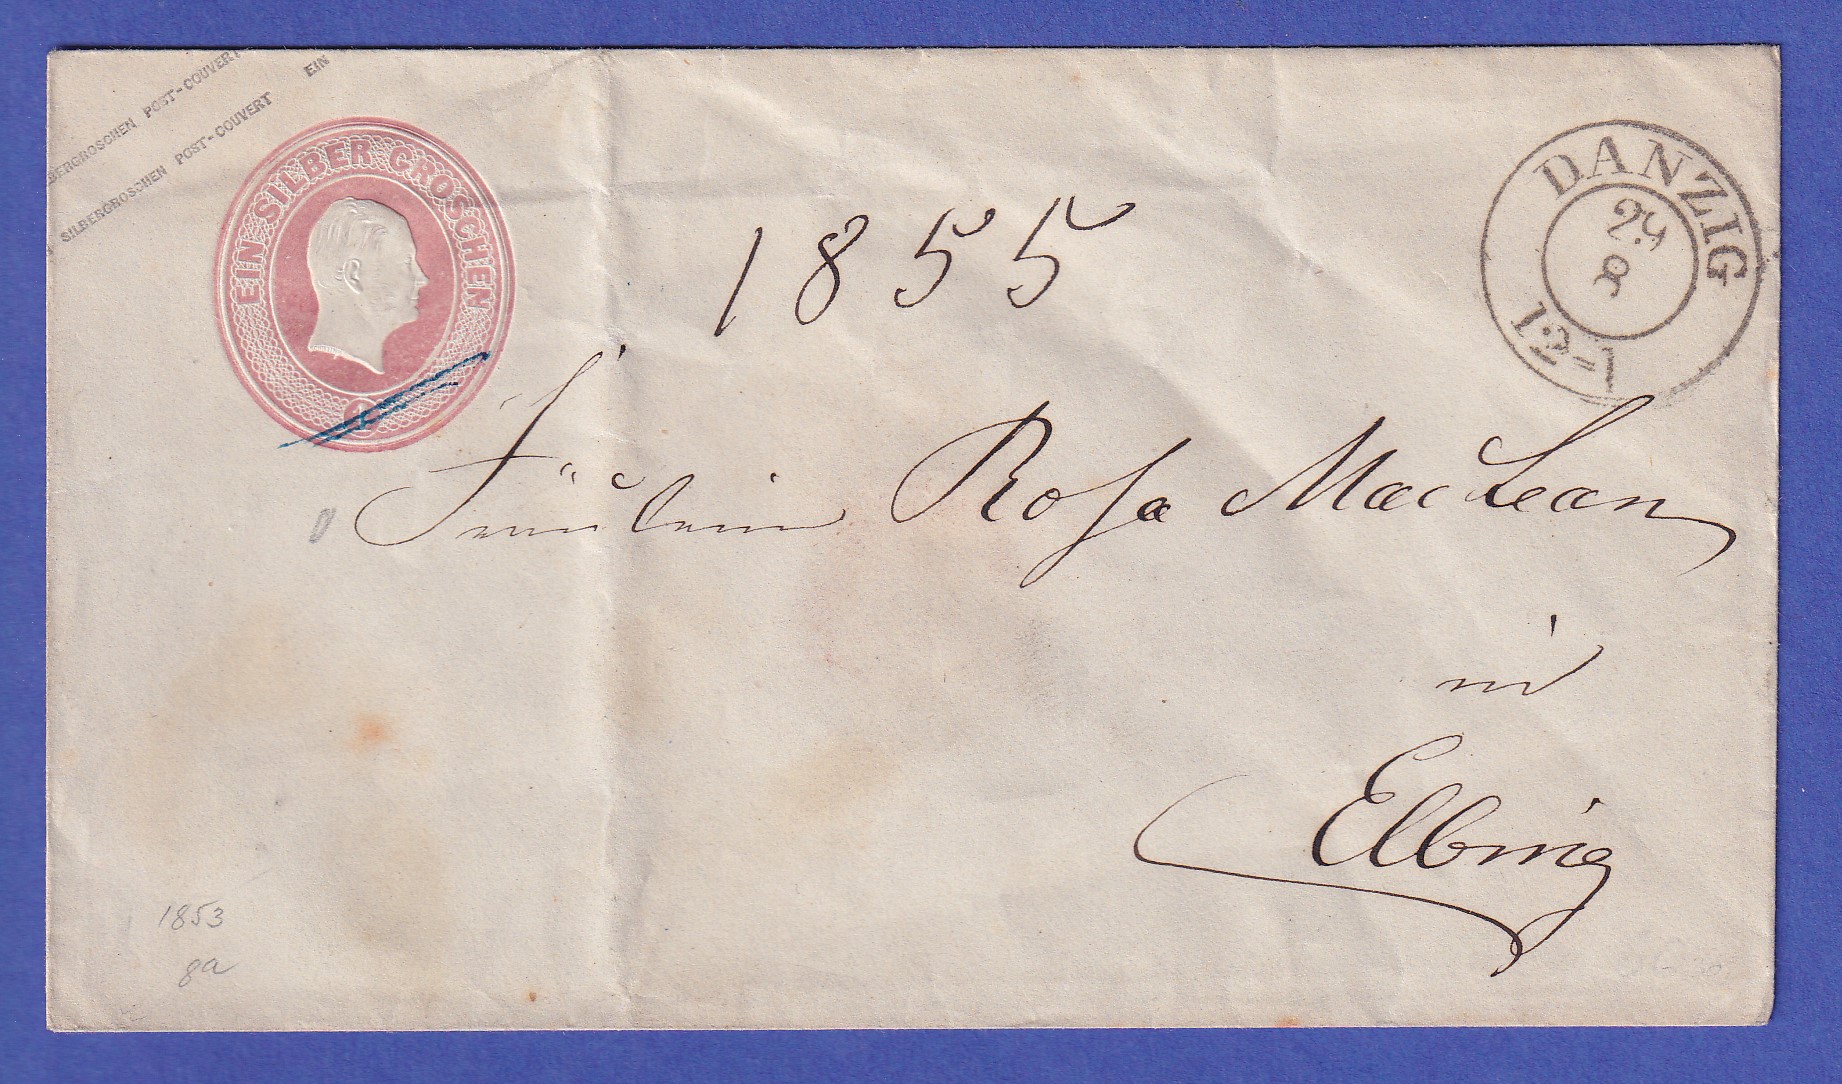 BERGROSCHEN POST-COUVERT EIN
SILBERGROSCHEN POST-COUVERT
EIN SILBER GROSCHEN
1
DANZIG
29
8
12-1
1855
Fräulein Rosa MacLean
in
Elbing
1853
8a